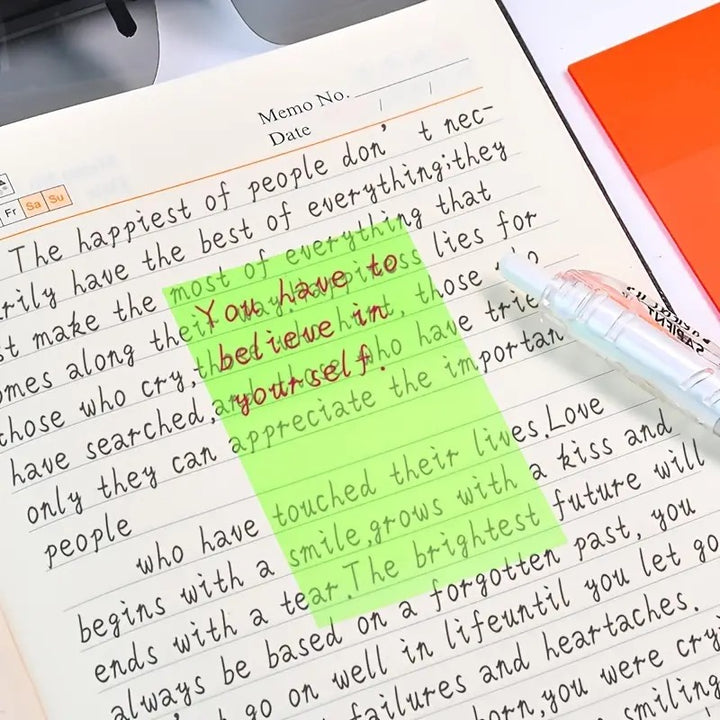 Memo No.
Date / /
Fr Sa Su
The happiest of people don't nec-
rily have the best of everything;they
st make the most of everything that
omes along their way.Happiness lies for
those who cry,those who hurt, those who
have searched,and those who have trie
only they can appreciate the importan
people
who have touched their lives.Love
begins with a smile,grows with a kiss and
ends with a tear.The brightest future will
always be based on a forgotten past, you
go on well in lifeuntil you let go
failures and heartaches.
orn,you were cryi
smiling
You have to
believe in
yourself.